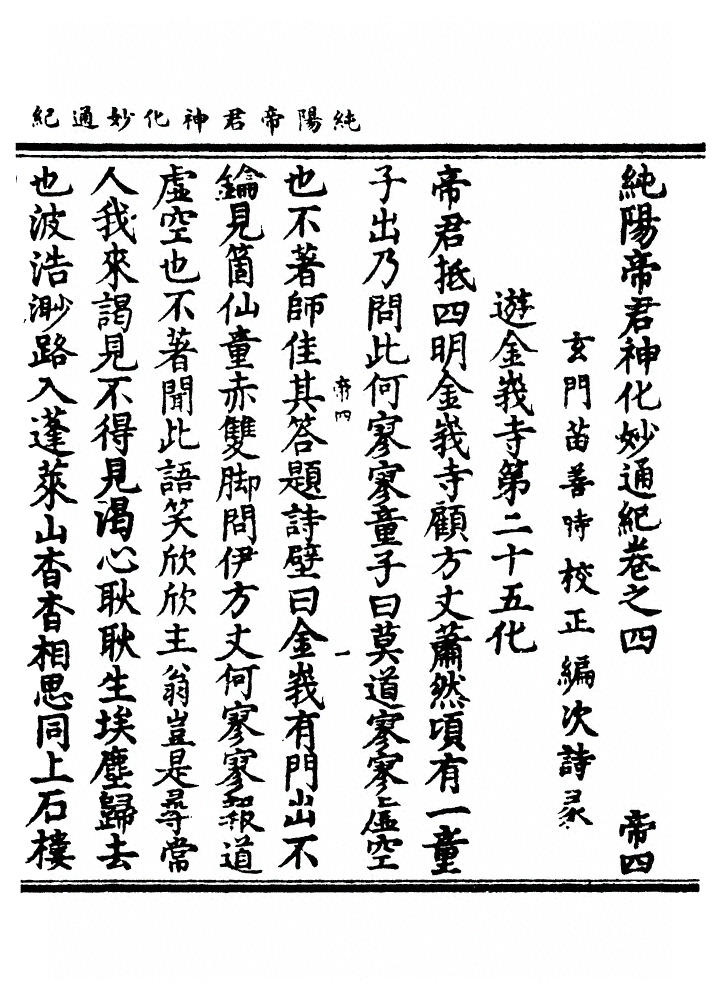 純陽帝君神化妙通紀
純陽帝君神化妙通紀卷之四 帝四
玄門苗善時校正編次詩彖
遊金峩寺第二十五化
帝君抵四明金峩寺顧方丈蕭然頃有一童
子出乃問此何寥寥童子曰莫道寥寥虛空
帝四 一
也不著師佳其答題詩壁曰金峩有門出不
鑰見箇仙童赤雙脚問伊方丈何寥寥報道
虛空也不著聞此語笑欣欣主翁豈是尋常
人我來謁見不得見渴心耿耿生埃塵歸去
也波浩渺路入蓬萊山杳杳相思同上石樓